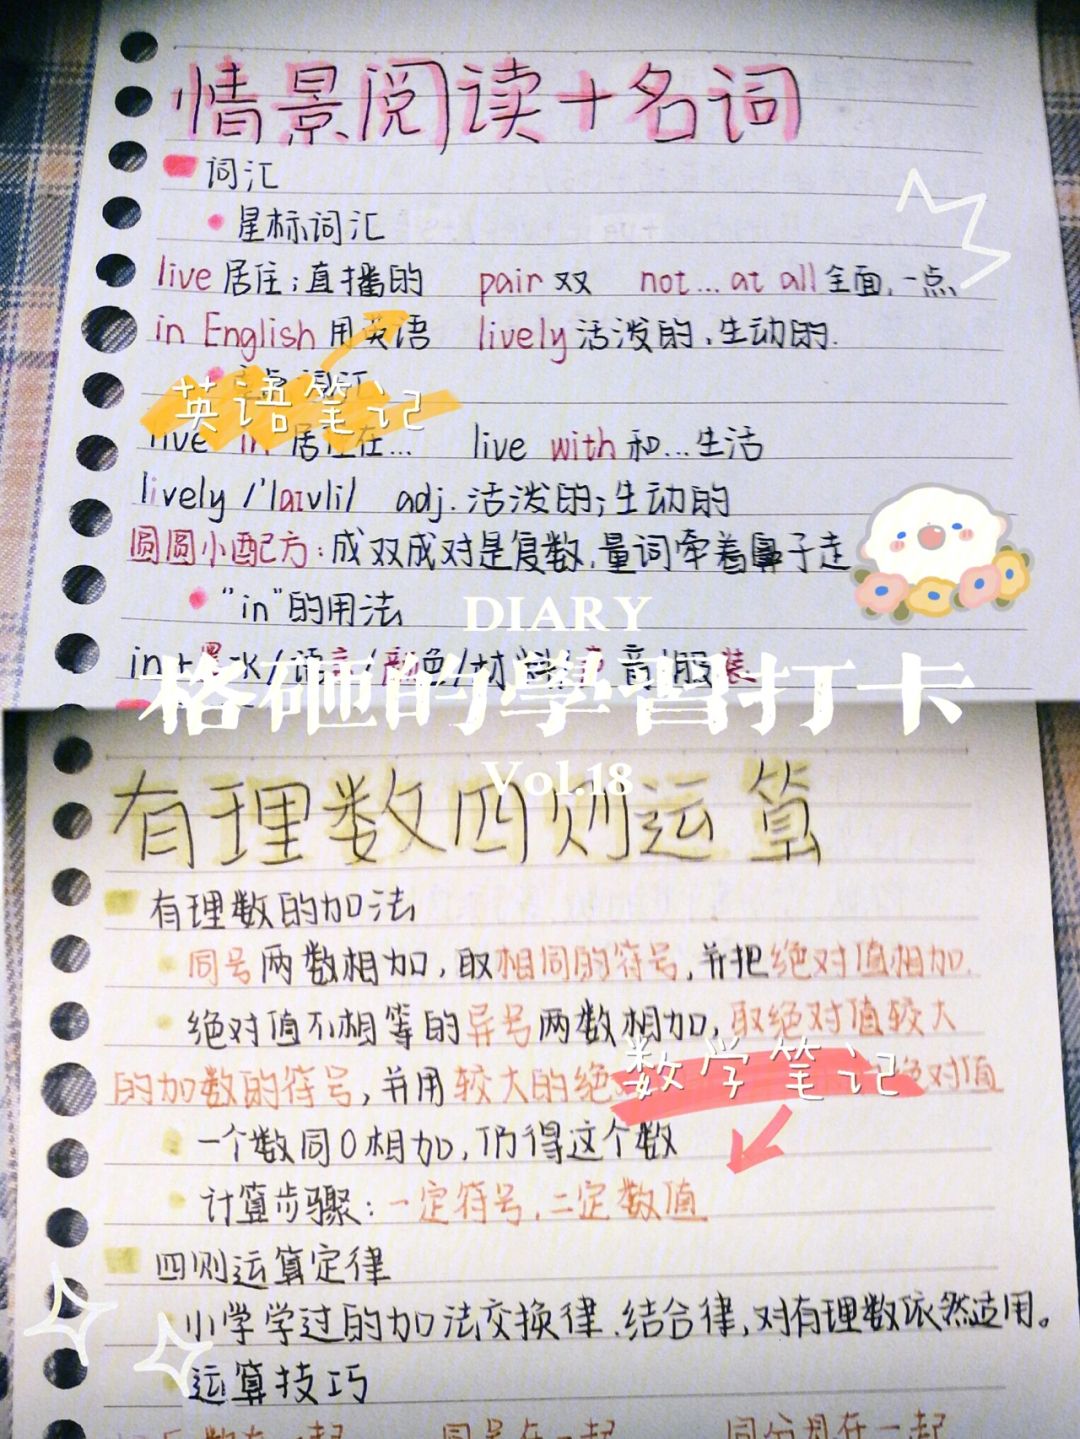 情景阅读+名词
词汇
星标词汇
live 居住；直播的 pair 双 not...at all 全面，一点
in English 用英语 lively 活泼的，生动的.
英语笔记
live in 居住在... live with 和...生活
lively /'laɪvli/ adj. 活泼的；生动的
圆圆小配方：成双成对是复数，量词牵着鼻子走
"in"的用法
DIARY
格砸的學習打卡
Vol.18
有理数四则运算
有理数的加法
同号两数相加，取相同的符号，并把绝对值相加.
绝对值不相等的异号两数相加，取绝对值较大
的加数的符号，并用较大的绝 绝对值
数学笔记
一个数同0相加，仍得这个数
计算步骤：一定符号，二定数值
四则运算定律
小学学过的加法交换律、结合律，对有理数依然适用。
运算技巧